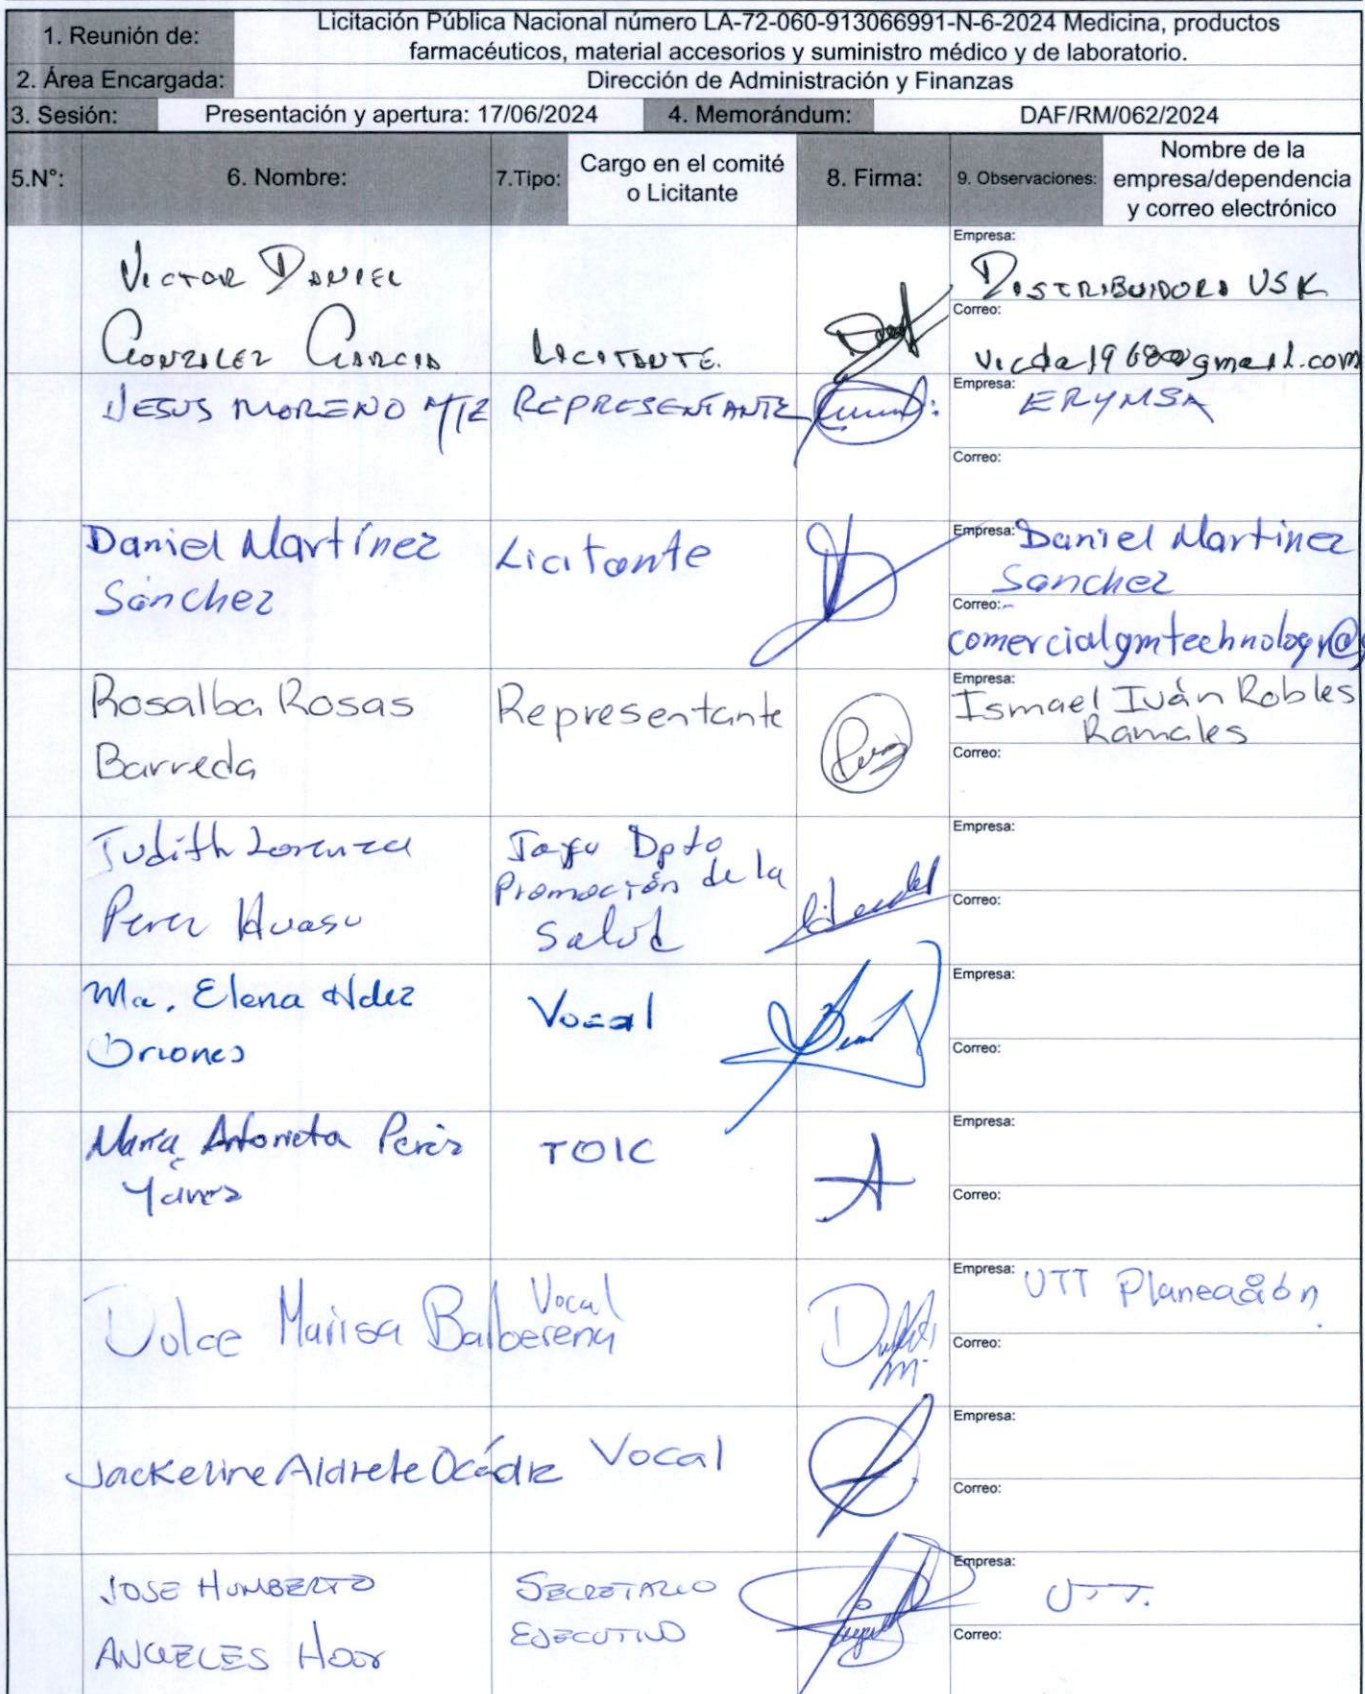 1. Reunión de: Licitación Pública Nacional número LA-72-060-913066991-N-6-2024 Medicina, productos
farmacéuticos, material accesorios y suministro médico y de laboratorio.
2. Área Encargada: Dirección de Administración y Finanzas
3. Sesión: Presentación y apertura: 17/06/2024 4. Memorándum: DAF/RM/062/2024
5.N°: 6. Nombre: 7.Tipo: Cargo en el comité
o Licitante
8. Firma: 9. Observaciones: Nombre de la
empresa/dependencia
y correo electrónico
VICTOR DANIEL
GONZALEZ GARCIA
LICITANTE.
Empresa:
DISTRIBUIDORA USK
Correo:
vicda1968@gmail.com
JESUS MORENO MTZ
REPRESENTANTE
Empresa:
ERYMSA
Correo:
Daniel Martínez
Sánchez
Licitante
Empresa: Daniel Martinez
Sanchez
Correo:
comercialgmtechnology@
Rosalba Rosas
Barreda
Representante
Empresa:
Ismael Iván Robles
Ramales
Correo:
Judith Lorenza
Perez
Dpto
Promoción de la
Salud
Empresa:
Correo:
Ma. Elena Hdez
Briones
Vocal
Empresa:
Correo:
María Antonieta Perez
Yañez
TOIC
Empresa:
Correo:
Dulce Marisa Balberena
Vocal
Empresa: UTT Planeación
Correo:
Jackeline Aldrete Ocádiz
Vocal
Empresa:
Correo:
JOSE HUMBERTO
ANGELES
SECRETARIO
EJECUTIVO
Empresa:
UTT.
Correo: